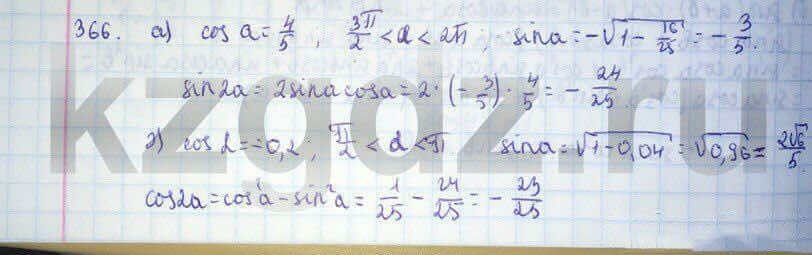 366. а) cos a = 4/5 , 3π/2 < α < 2π , sin a = -√(1 - 16/25) = - 3/5.
sin2a = 2sina cosa = 2 · (- 3/5) · 4/5 = - 24/25
г) cos α = -0,2 ; π/2 < α < π sina = √(1-0,04) = √0,96 = 2√6/5.
cos2a = cos²a - sin²a = 1/25 - 24/25 = - 23/25
kzgdz.ru